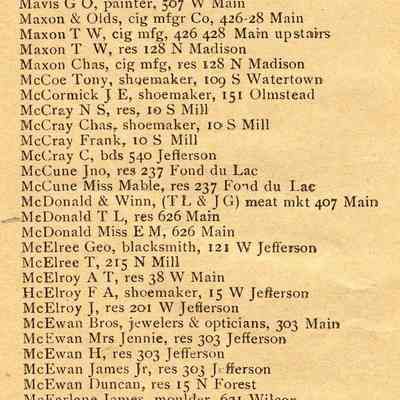 Mavis G O, painter, 307 W Main
Maxon & Olds, cig mfgr Co, 426-28 Main
Maxon T W, cig mfg, 426 428 Main upstairs
Maxon T W, res 128 N Madison
Maxon Chas, cig mfg, res 128 N Madison
McCoe Tony, shoemaker, 109 S Watertown
McCormick J E, shoemaker, 151 Olmstead
McCray N S, res, 10 S Mill
McCray Chas, shoemaker, 10 S Mill
McCray Frank, 10 S Mill
McCray C, bds 540 Jefferson
McCune Jno, res 237 Fond du Lac
McCune Miss Mable, res 237 Fond du Lac
McDonald & Winn, (T L & J G) meat mkt 407 Main
McDonald T L, res 626 Main
McDonald Miss E M, 626 Main
McElree Geo, blacksmith, 121 W Jefferson
McElree T, 215 N Mill
McElroy A T, res 38 W Main
HcElroy F A, shoemaker, 15 W Jefferson
McElroy J, res 201 W Jefferson
McEwan Bros, jewelers & opticians, 303 Main
McEwan Mrs Jennie, res 303 Jefferson
McEwan H, res 303 Jefferson
McEwan James Jr, res 303 Jefferson
McEwan Duncan, res 15 N Forest
McFarlane James, moulder, 621 Wilcox